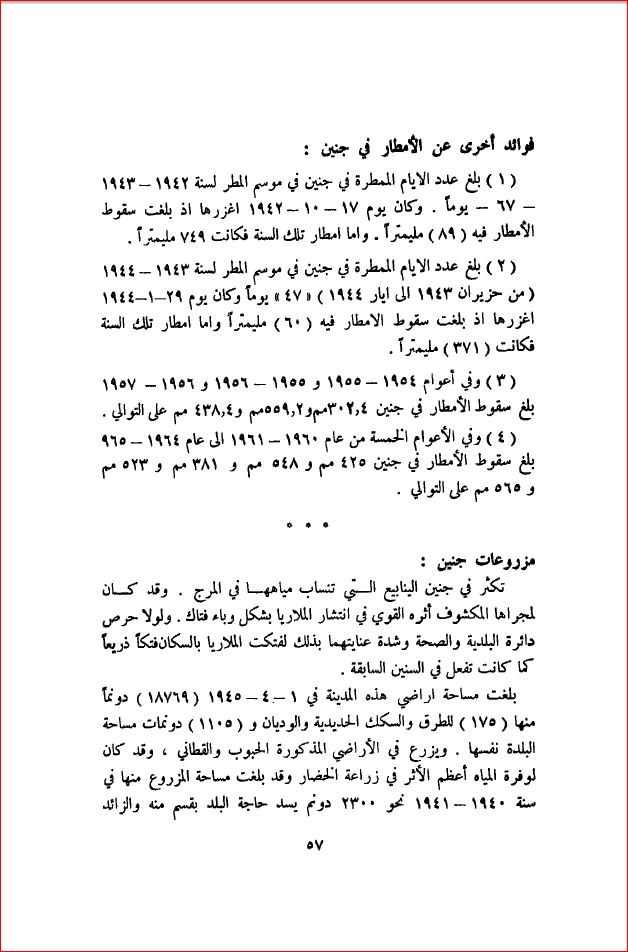 فوائد أخرى عن الأمطار في جنين :
( ١ ) بلغ عدد الايام الممطرة في جنين في موسم المطر لسنة ١٩٤٢ – ١٩٤٣
– ٦٧ – يوماً . وكان يوم ١٧ – ١٠ – ١٩٤٢ اغزرها اذ بلغت سقوط
الأمطار فيه ( ٨٩ ) مليمتراً . واما امطار تلك السنة فكانت ٧٤٩ مليمتراً .
( ٢ ) بلغ عدد الايام الممطرة في جنين في موسم المطر لسنة ١٩٤٣ – ١٩٤٤
( من حزيران ١٩٤٣ الى ايار ١٩٤٤ ) « ٤٧ » يوماً وكان يوم ٢٩–١–١٩٤٤
اغزرها اذ بلغت سقوط الامطار فيه ( ٦٠ ) مليمتراً واما امطار تلك السنة
فكانت ( ٣٧١ ) مليمتراً .
( ٣ ) وفي أعوام ١٩٥٤ – ١٩٥٥ و ١٩٥٥ – ١٩٥٦ و ١٩٥٦ – ١٩٥٧
بلغ سقوط الأمطار في جنين ٣٠٢,٤مم و٥٥٩,٢مم و ٤٣٨,٤ مم على التوالي .
( ٤ ) وفي الأعوام الخمسة من عام ١٩٦٠ – ١٩٦١ الى عام ١٩٦٤ – ٩٦٥
بلغ سقوط الأمطار في جنين ٤٢٥ مم و ٥٤٨ مم و ٣٨١ مم و ٥٢٣ مم
و ٥٦٥ مم على التوالي .
* * *
مزروعات جنين :
تكثر في جنين الينابيع التي تنساب مياهها في المرج . وقد كان
لمجراها المكشوف أثره القوي في انتشار الملاريا بشكل وباء فتاك . ولولا حرص
دائرة البلدية والصحة وشدة عنايتهما بذلك لفتكت الملاريا بالسكان فتكاً ذريعاً
كما كانت تفعل في السنين السابقة .
بلغت مساحة اراضي هذه المدينة في ١ – ٤ – ١٩٤٥ ( ١٨٧٦٩ ) دونماً
منها ( ١٧٥ ) للطرق والسكك الحديدية والوديان و ( ١١٠٥ ) دونمات مساحة
البلدة نفسها . ويزرع في الأراضي المذكورة الحبوب والقطاني ، وقد كان
لوفرة المياه أعظم الأثر في زراعة الخضار وقد بلغت مساحة المزروع منها في
سنة ١٩٤٠ – ١٩٤١ نحو ٢٣٠٠ دونم يسد حاجة البلد بقسم منه والزائد
٥٧